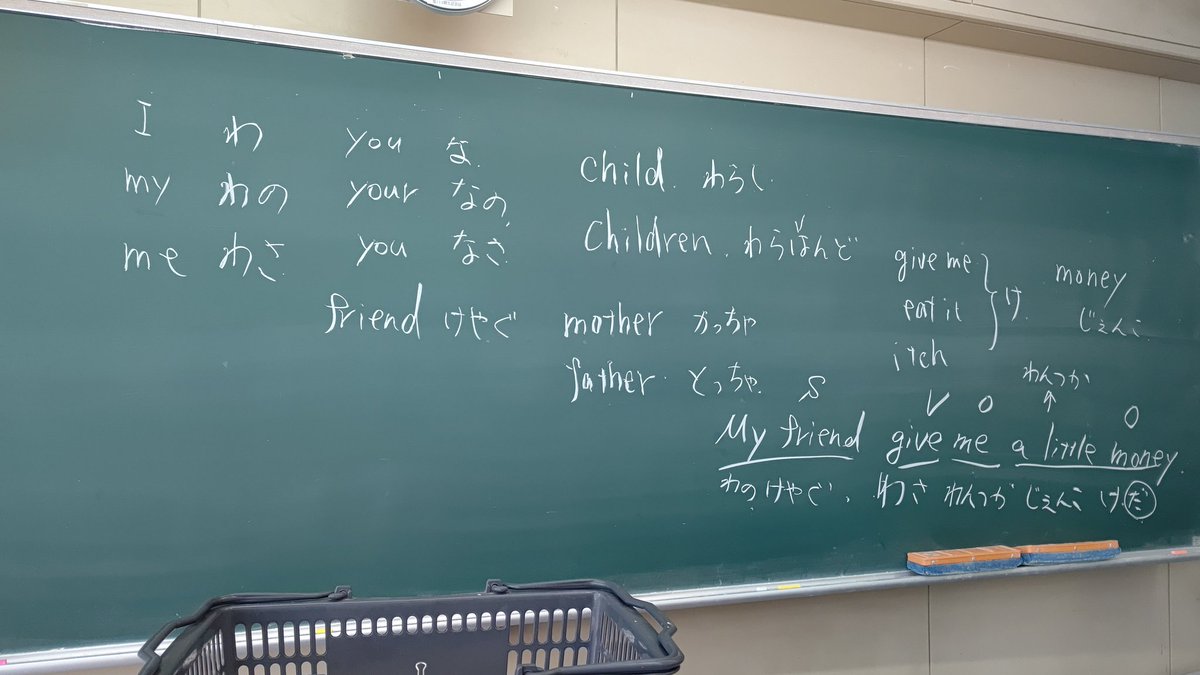 I わ you な
my わの your なの
me わさ you なさ
friend けやぐ
child わらし
children わらはんど
mother かっちゃ
father とっちゃ
give me
eat it
itch
け
money
じぇんこ
わんつか
↑
S V O O
My friend give me a little money.
わのけやぐ、わさ わんつか じぇんこ けだ